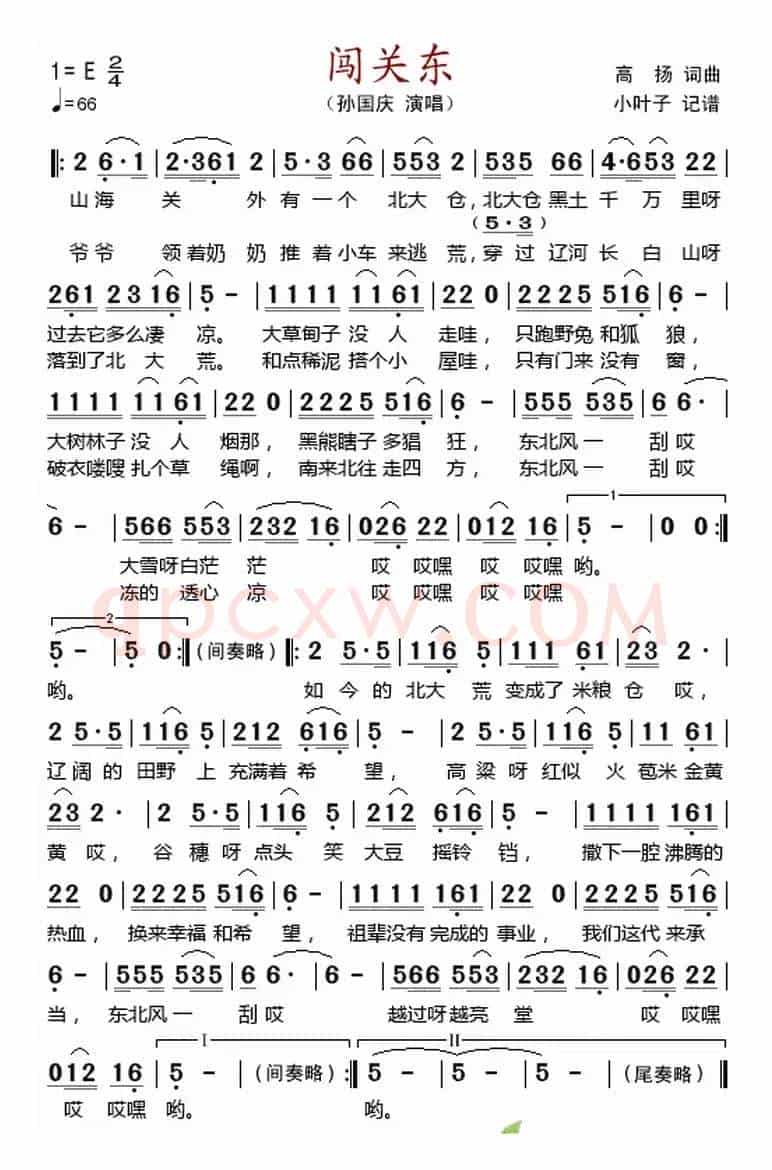 闯关东
1=E 2/4
♩=66
（孙国庆 演唱）
高 扬 词曲
小叶子 记谱
‖: 2 6·1 | 2·361 2 | 5·3 66 | 553 2 | 535 66 | 4·653 22 |
山海 关 外有一个 北大 仓，北大仓黑土 千 万 里呀
（5·3）
爷爷 领着奶 奶推着小车 来逃 荒，穿 过 辽河 长 白 山呀
261 2316 | 5 - | 1111 1161 | 22 0 | 2225 516 | 6 - |
过去它多么凄 凉。 大草甸子 没 人 走哇， 只跑野兔 和狐 狼，
落到了北 大 荒。 和点稀泥 搭个小 屋哇， 只有门来 没有 窗，
1111 1161 | 22 0 | 2225 516 | 6 - | 555 535 | 6 6· |
大树林子 没 人 烟那， 黑熊瞎子 多猖 狂， 东北风一 刮哎
破衣喽嗖 扎个草 绳啊， 南来北往 走四 方， 东北风一 刮哎
6 - | 566 553 | 232 16 | 026 22 | 012 16 | 1 5 - | 0 0 :‖
大雪呀白茫 茫 哎 哎嘿 哎 哎嘿 哟。
冻的 透心 凉 哎 哎嘿 哎 哎嘿
qpcxw.COM
2 5 - | 5 0 :‖（间奏略）‖: 2 5·5 | 116 5 | 111 61 | 23 2· |
哟。 如 今的 北大 荒 变成了 米粮 仓 哎，
2 5·5 | 116 5 | 212 616 | 5 - | 2 5·5 | 116 5 | 11 61 |
辽 阔的 田野 上 充满着 希 望， 高 粱呀 红似 火 苞米金黄
23 2· | 2 5·5 | 116 5 | 212 616 | 5 - | 1111 161 |
黄 哎， 谷 穗呀 点头 笑 大豆 摇铃 铛， 撒下一腔 沸腾的
22 0 | 2225 516 | 6 - | 1111 161 | 22 0 | 2225 516 |
热血， 换来幸福 和希 望， 祖辈没有 完成的 事业， 我们这代 来承
6 - | 555 535 | 6 6· | 6 - | 566 553 | 232 16 | 026 22 |
当， 东北风一 刮哎 越过呀越亮 堂 哎 哎嘿
012 16 | I 5 - |（间奏略）:‖ II 5 - | 5 - | 5 - |（尾奏略）‖
哎 哎嘿 哟。 哟。